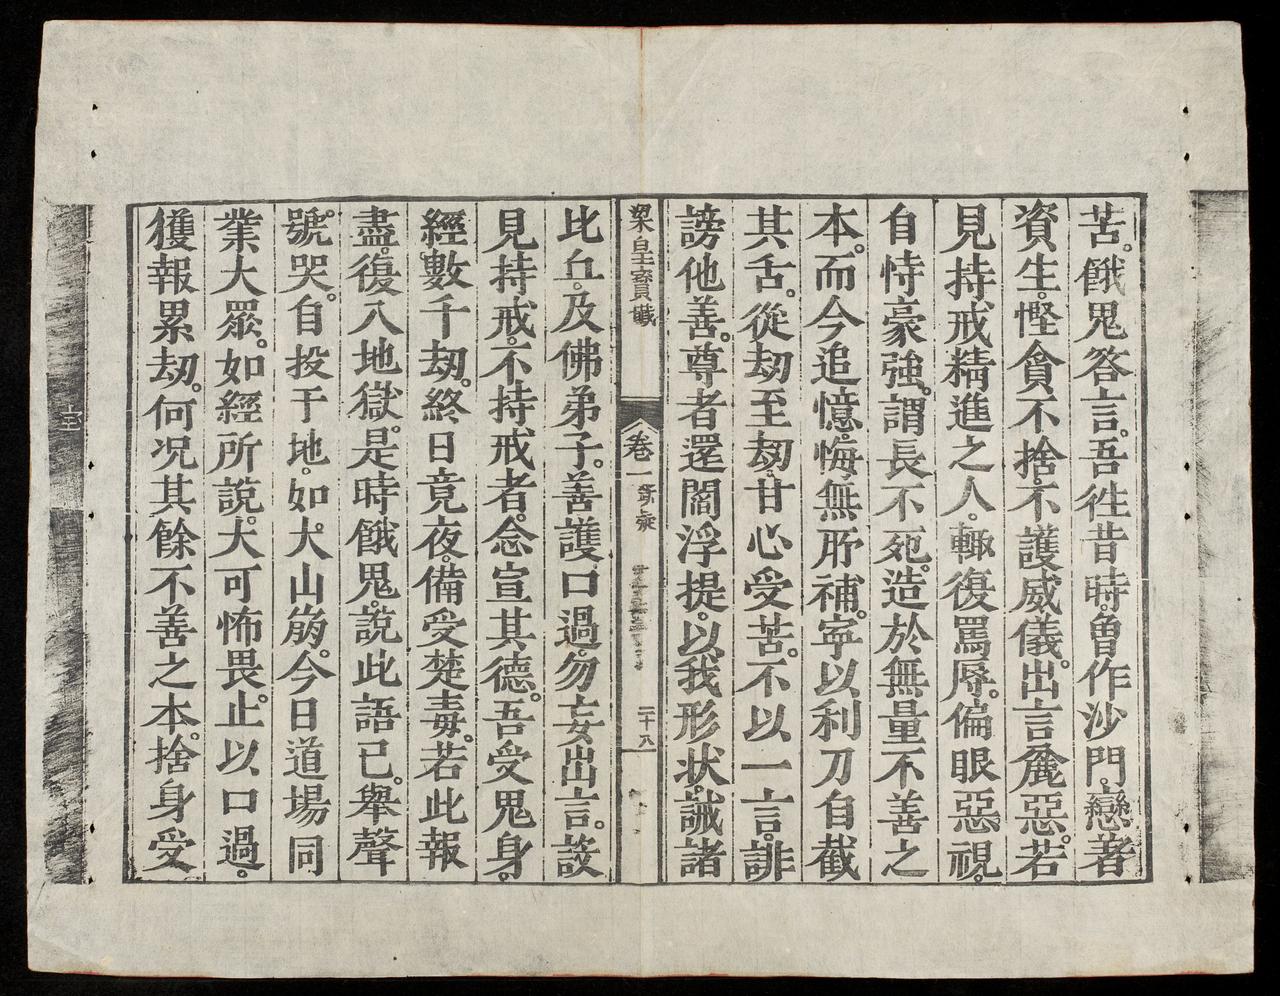 苦。餓鬼答言。吾徃昔時。曾作沙門。戀著
資生。慳貪不捨。不護威儀。出言麄惡。若
見持戒精進之人。輙復罵辱。偏眼惡視。
自恃豪強。謂長不死。造於無量不善之
本。而今追憶。悔無所補。寧以利刀自截
其舌。從劫至劫。甘心受苦。不以一言。誹
謗他善。尊者還閻浮提。以我形状。誡諸
梁皇寳懴
卷一
二十八
比丘。及佛弟子。善護口過。勿妄出言。設
見持戒。不持戒者。念宣其德。吾受鬼身。
經數千劫。終日竟夜。備受楚毒。若此報
盡。復入地獄。是時餓鬼。說此語已。舉聲
號哭。自投于地。如大山崩。今日道場同
業大眾。如經所說。大可怖畏。止以口過。
獲報累劫。何况其餘不善之本。捨身受